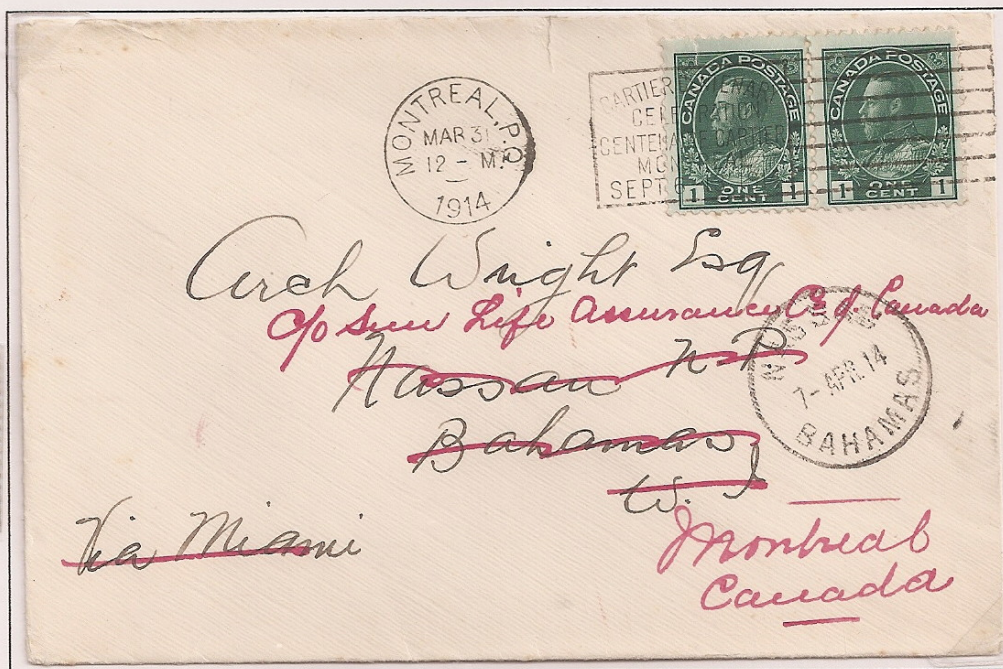 MONTREAL, P.Q.
MAR 31
12 - M.
1914
CARTIER CENTENARY
CELEBRATION
CENTENAIRE CARTIER
MONTREAL
SEPT
CANADA POSTAGE
1 ONE CENT 1
CANADA POSTAGE
1 ONE CENT 1
Arch Wright Esq
c/o Sun Life Assurance Co of Canada
Nassau N.P.
Bahamas
W. I
Via Miami
NASSAU
7-APR.14
BAHAMAS
Montreal
Canada